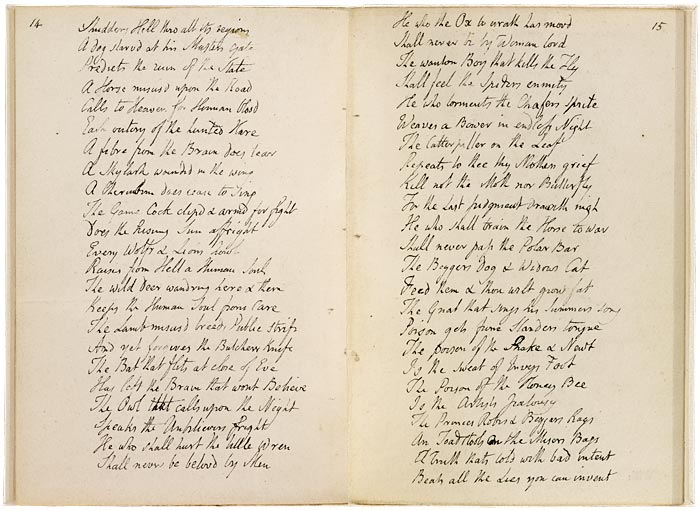 14
Shudders Hell thro all its regions
A dog starvd at his Masters Gate
Predicts the ruin of the State
A Horse misusd upon the Road
Calls to Heaven for Human blood
Each outcry of the hunted Hare
A fibre from the Brain does tear
A Skylark wounded in the wing
A Cherubim does cease to sing
The Game Cock clipd & armd for fight
Does the Rising Sun affright
Every Wolfs & Lions howl
Raises from Hell a Human Soul
The wild deer wandring here & there
Keeps the Human Soul from Care
The Lamb misusd breeds Public strife
And yet forgives the Butchers Knife
The Bat that flits at close of Eve
Has left the Brain that wont Believe
The Owl that calls upon the Night
Speaks the Unbelievers fright
He who shall hurt the little Wren
Shall never be belovd by Men
15
He who the Ox to wrath has movd
Shall never be by Woman lovd
The wanton Boy that kills the Fly
Shall feel the Spiders enmity
He who torments the Chafers sprite
Weaves a Bower in endless Night
The Catterpiller on the Leaf
Repeats to thee thy Mothers grief
Kill not the Moth nor Butterfly
For the Last Judgment draweth nigh
He who shall train the Horse to war
Shall never pass the Polar Bar
The Beggers Dog & Widows Cat
Feed them & thou wilt grow fat
The Gnat that sings his Summers song
Poison gets from Slanders tongue
The poison of the Snake & Newt
Is the sweat of Envys Foot
The Poison of the Honey Bee
Is the Artists Jealousy
The Princes Robes & Beggars Rags
Are Toadstools on the Misers Bags
A truth thats told with bad intent
Beats all the Lies you can invent